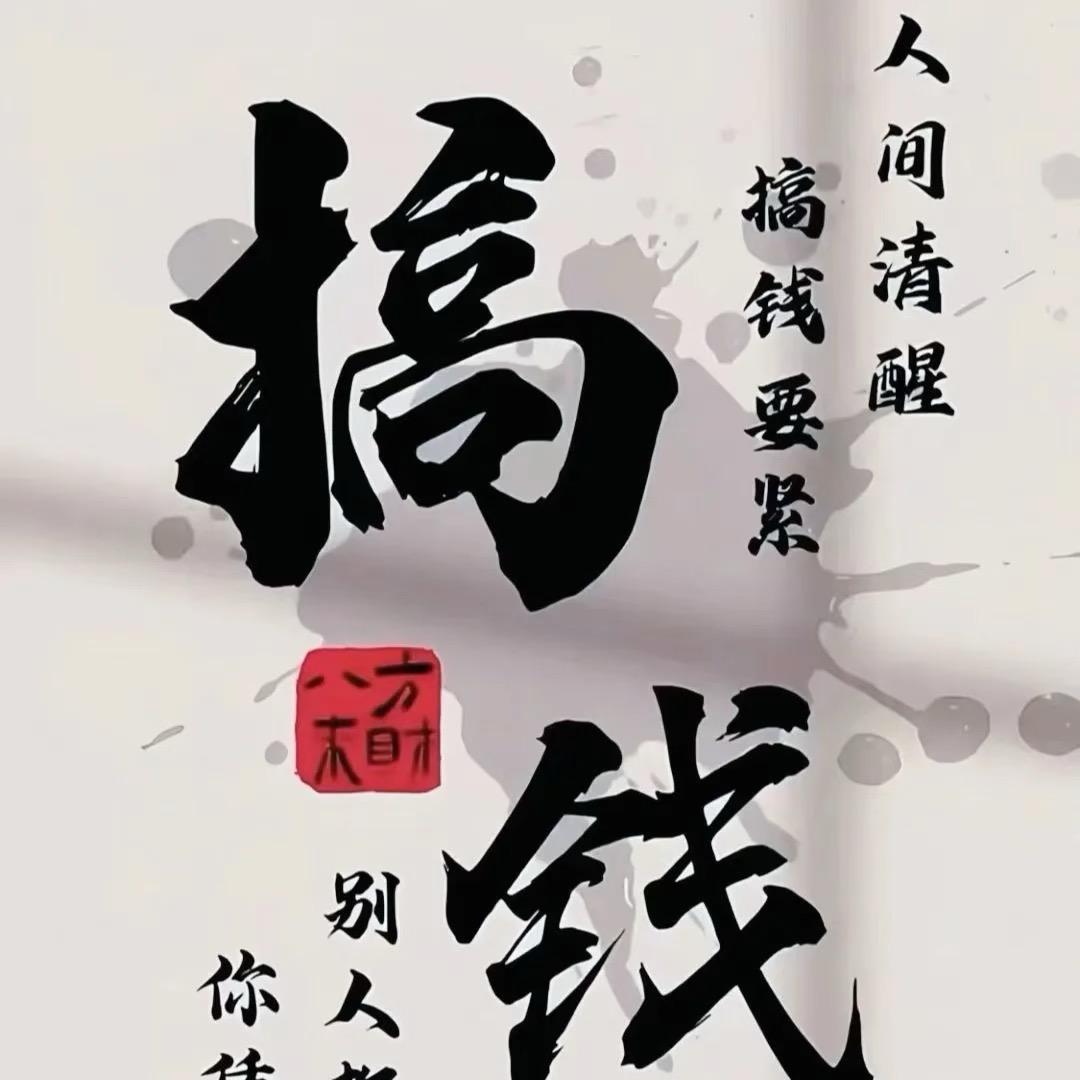 人间清醒
搞钱要紧
搞钱
八方
来财
别人
你